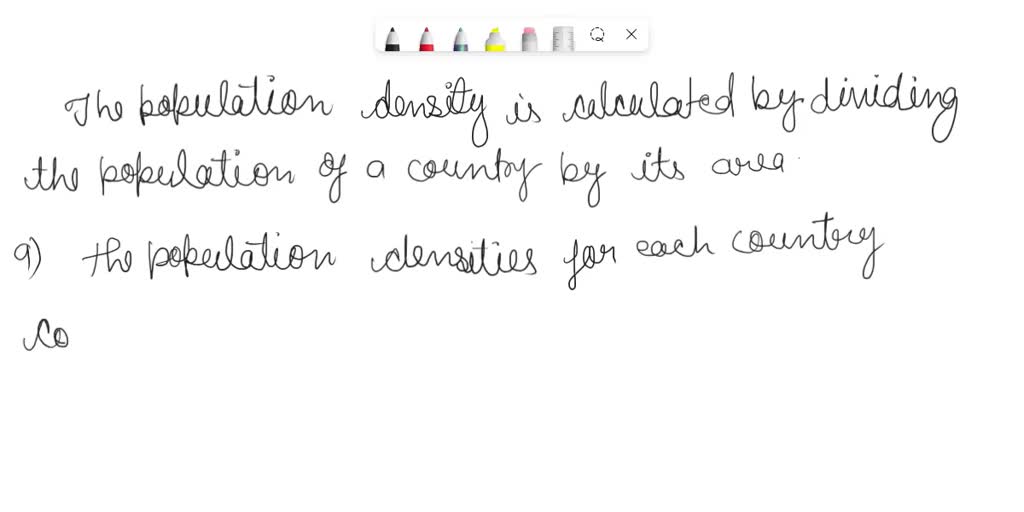 The population density is calculated by dividing
the population of a country by its area.
a) the population densities for each country
co